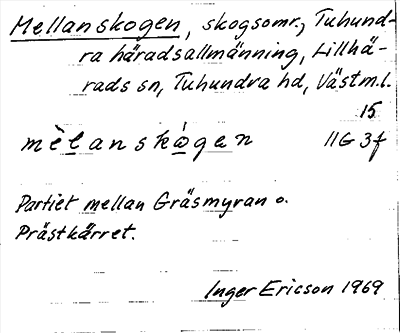 Mellanskogen, skogsomr., Tuhund-
ra häradsallmänning, Lillhä-
rads sn, Tuhundra hd, Västm.l.
15
mèlanskógen 11G 3f
Partiet mellan Gräsmyran o.
Prästkärret.
Inger Ericson 1969